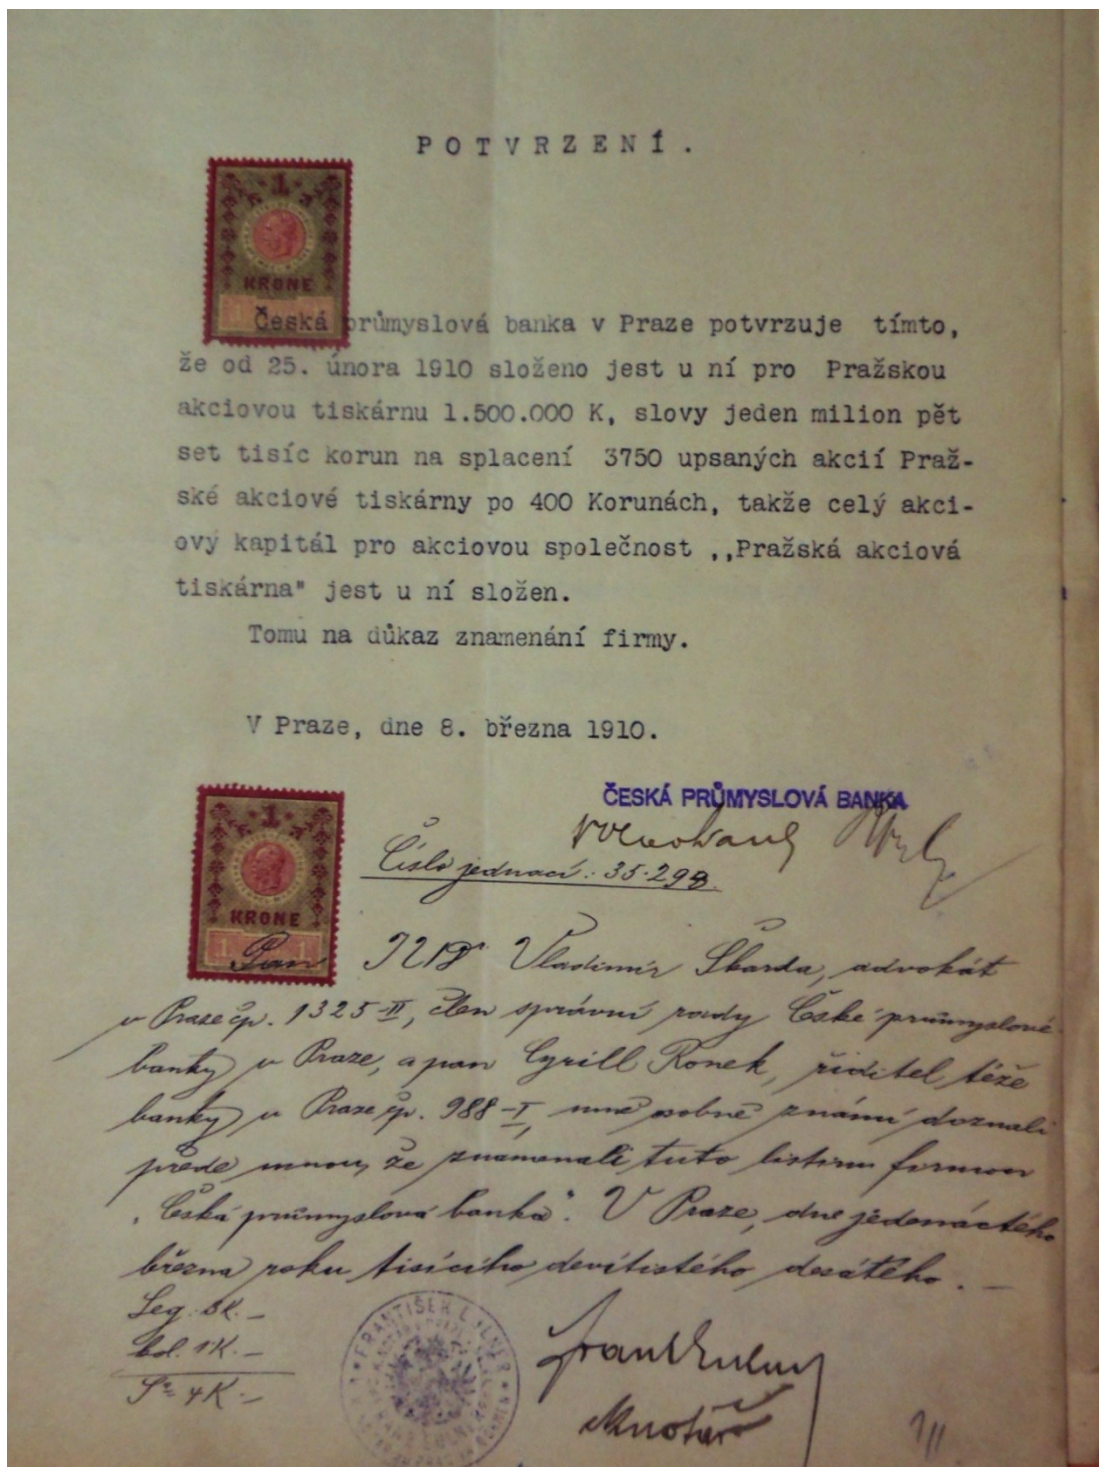 POTVRZENÍ.
1
KRONE
Česká průmyslová banka v Praze potvrzuje tímto,
že od 25. února 1910 složeno jest u ní pro Pražskou
akciovou tiskárnu 1.500.000 K, slovy jeden milion pět
set tisíc korun na splacení 3750 upsaných akcií Praž-
ské akciové tiskárny po 400 Korunách, takže celý akci-
ový kapitál pro akciovou společnost ,,Pražská akciová
tiskárna" jest u ní složen.
Tomu na důkaz znamenání firmy.
V Praze, dne 8. března 1910.
ČESKÁ PRŮMYSLOVÁ BANKA
Číslo jednací: 35.298.
1
KRONE
1 1
Pan JUDr Vladimír Škarda, advokát
v Praze čp. 1325-II, člen správní rady České průmyslové
banky v Praze, a pan Cyrill Ronek, řiditel téže
banky v Praze čp. 988-I, mně osobně známí doznali
přede mnou, že znamenali tuto listinu firmou
„Česká průmyslová banka". V Praze, dne jedenáctého
března roku tisícího devítistého desátého. —
Leg. 3K. –
kol. 1K. –
4K. –
FRANTIŠEK
notář